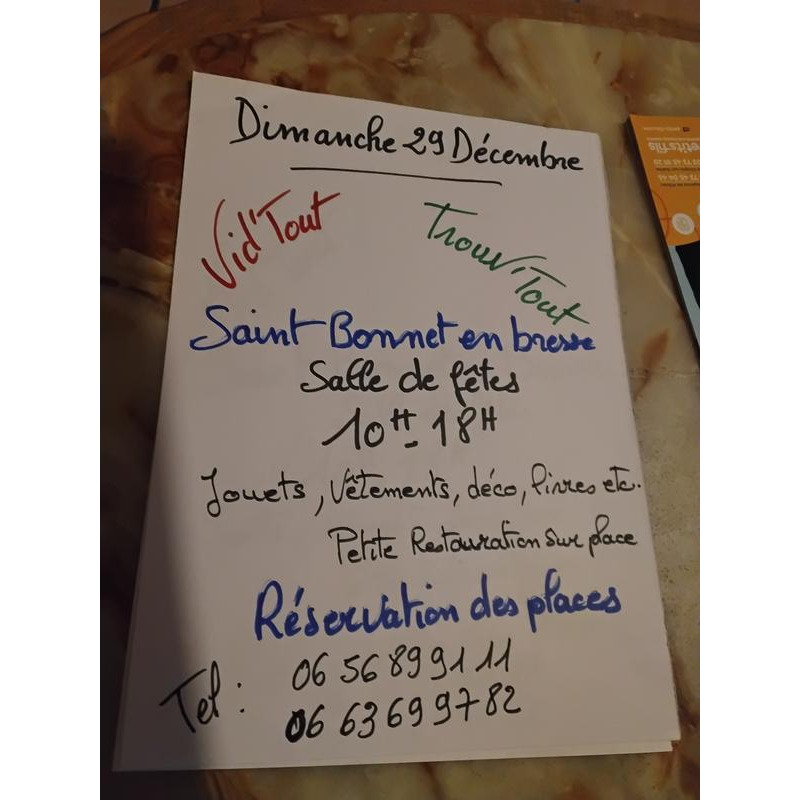 Dimanche 29 Décembre
Vid'Tout
Trouv'Tout
Saint Bonnet en bresse
Salle de fêtes
10H-18H
Jouets, Vêtements, déco, livres etc.
Petite Restauration sur place
Réservation des places
Tel : 06 56 89 91 11
06 63 69 97 82
petitsfils